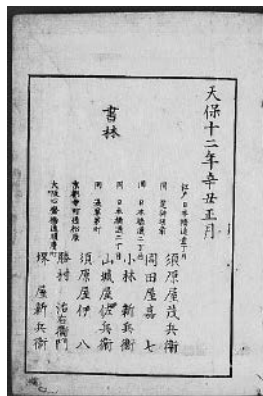 天保十二年辛丑正月
書林
江戸日本橋通壱丁目 須原屋茂兵衛
同 芝神明前 岡田屋嘉七
同 日本橋通二丁目 小林新兵衛
同 日本橋通二丁目 山城屋佐兵衛
同 浅草茅町 須原屋伊八
京都寺町通松原 勝村治右衛門
大坂心斎橋通 堺屋新兵衛